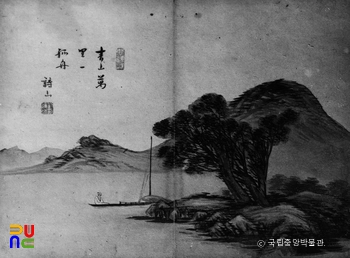 青山萬
里一
孤舟
詩山
© 국립중앙박물관